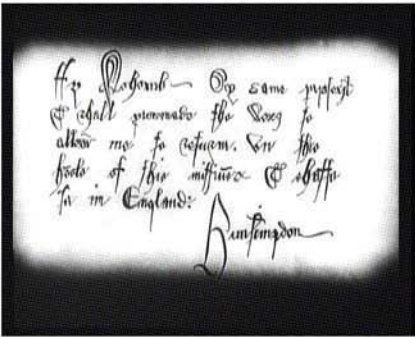 By some pretext
I shall persuade the King to
allow me to return. On the
heels of this missive I shall
be in England:
Huntingdon